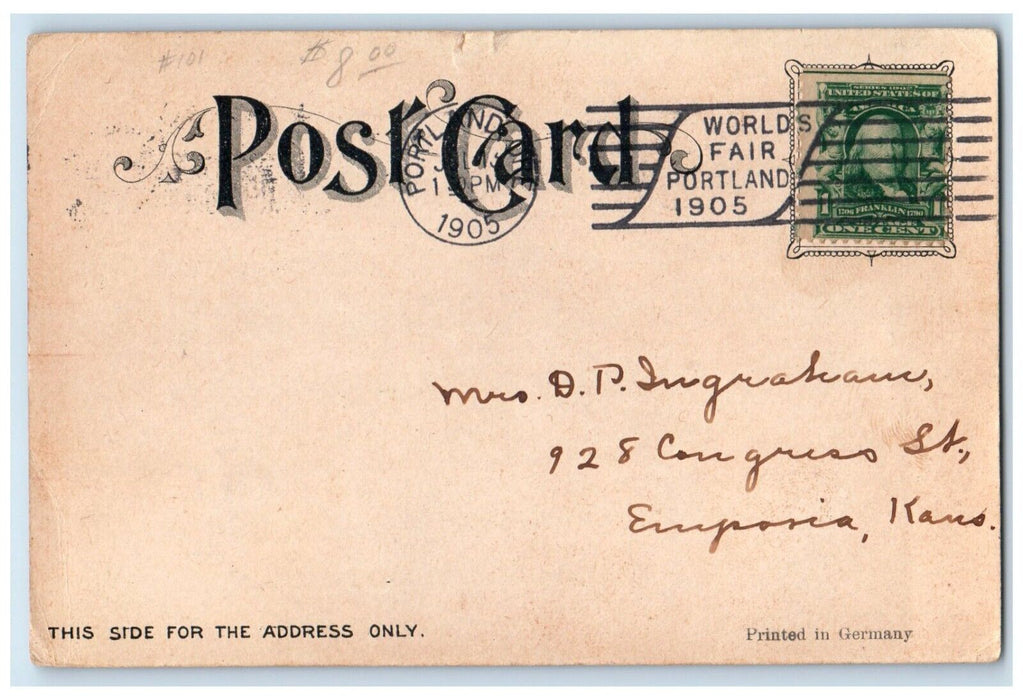 #101 $8.00
Post Card
PORTLAND, ORE.
1905
WORLD'S
FAIR
PORTLAND
1905
SERIES 1902
UNITED STATES OF
AMERICA
1 1706 FRANKLIN 1790
ONE CENT
Mrs. D. P. Ingraham,
928 Congress St.,
Emporia, Kans.
THIS SIDE FOR THE ADDRESS ONLY.
Printed in Germany